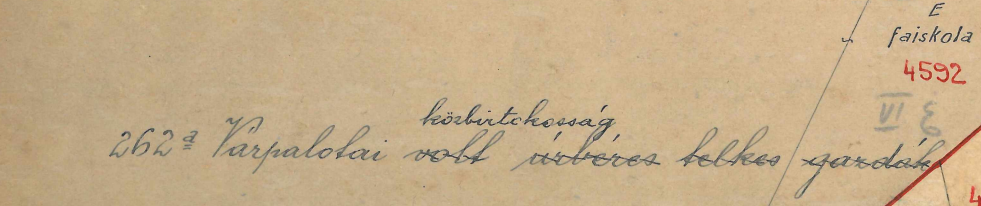 E
faiskola
4592
IV 3
közbirtokosság
262a Várpalotai volt úrbéres telkes gazdák
4